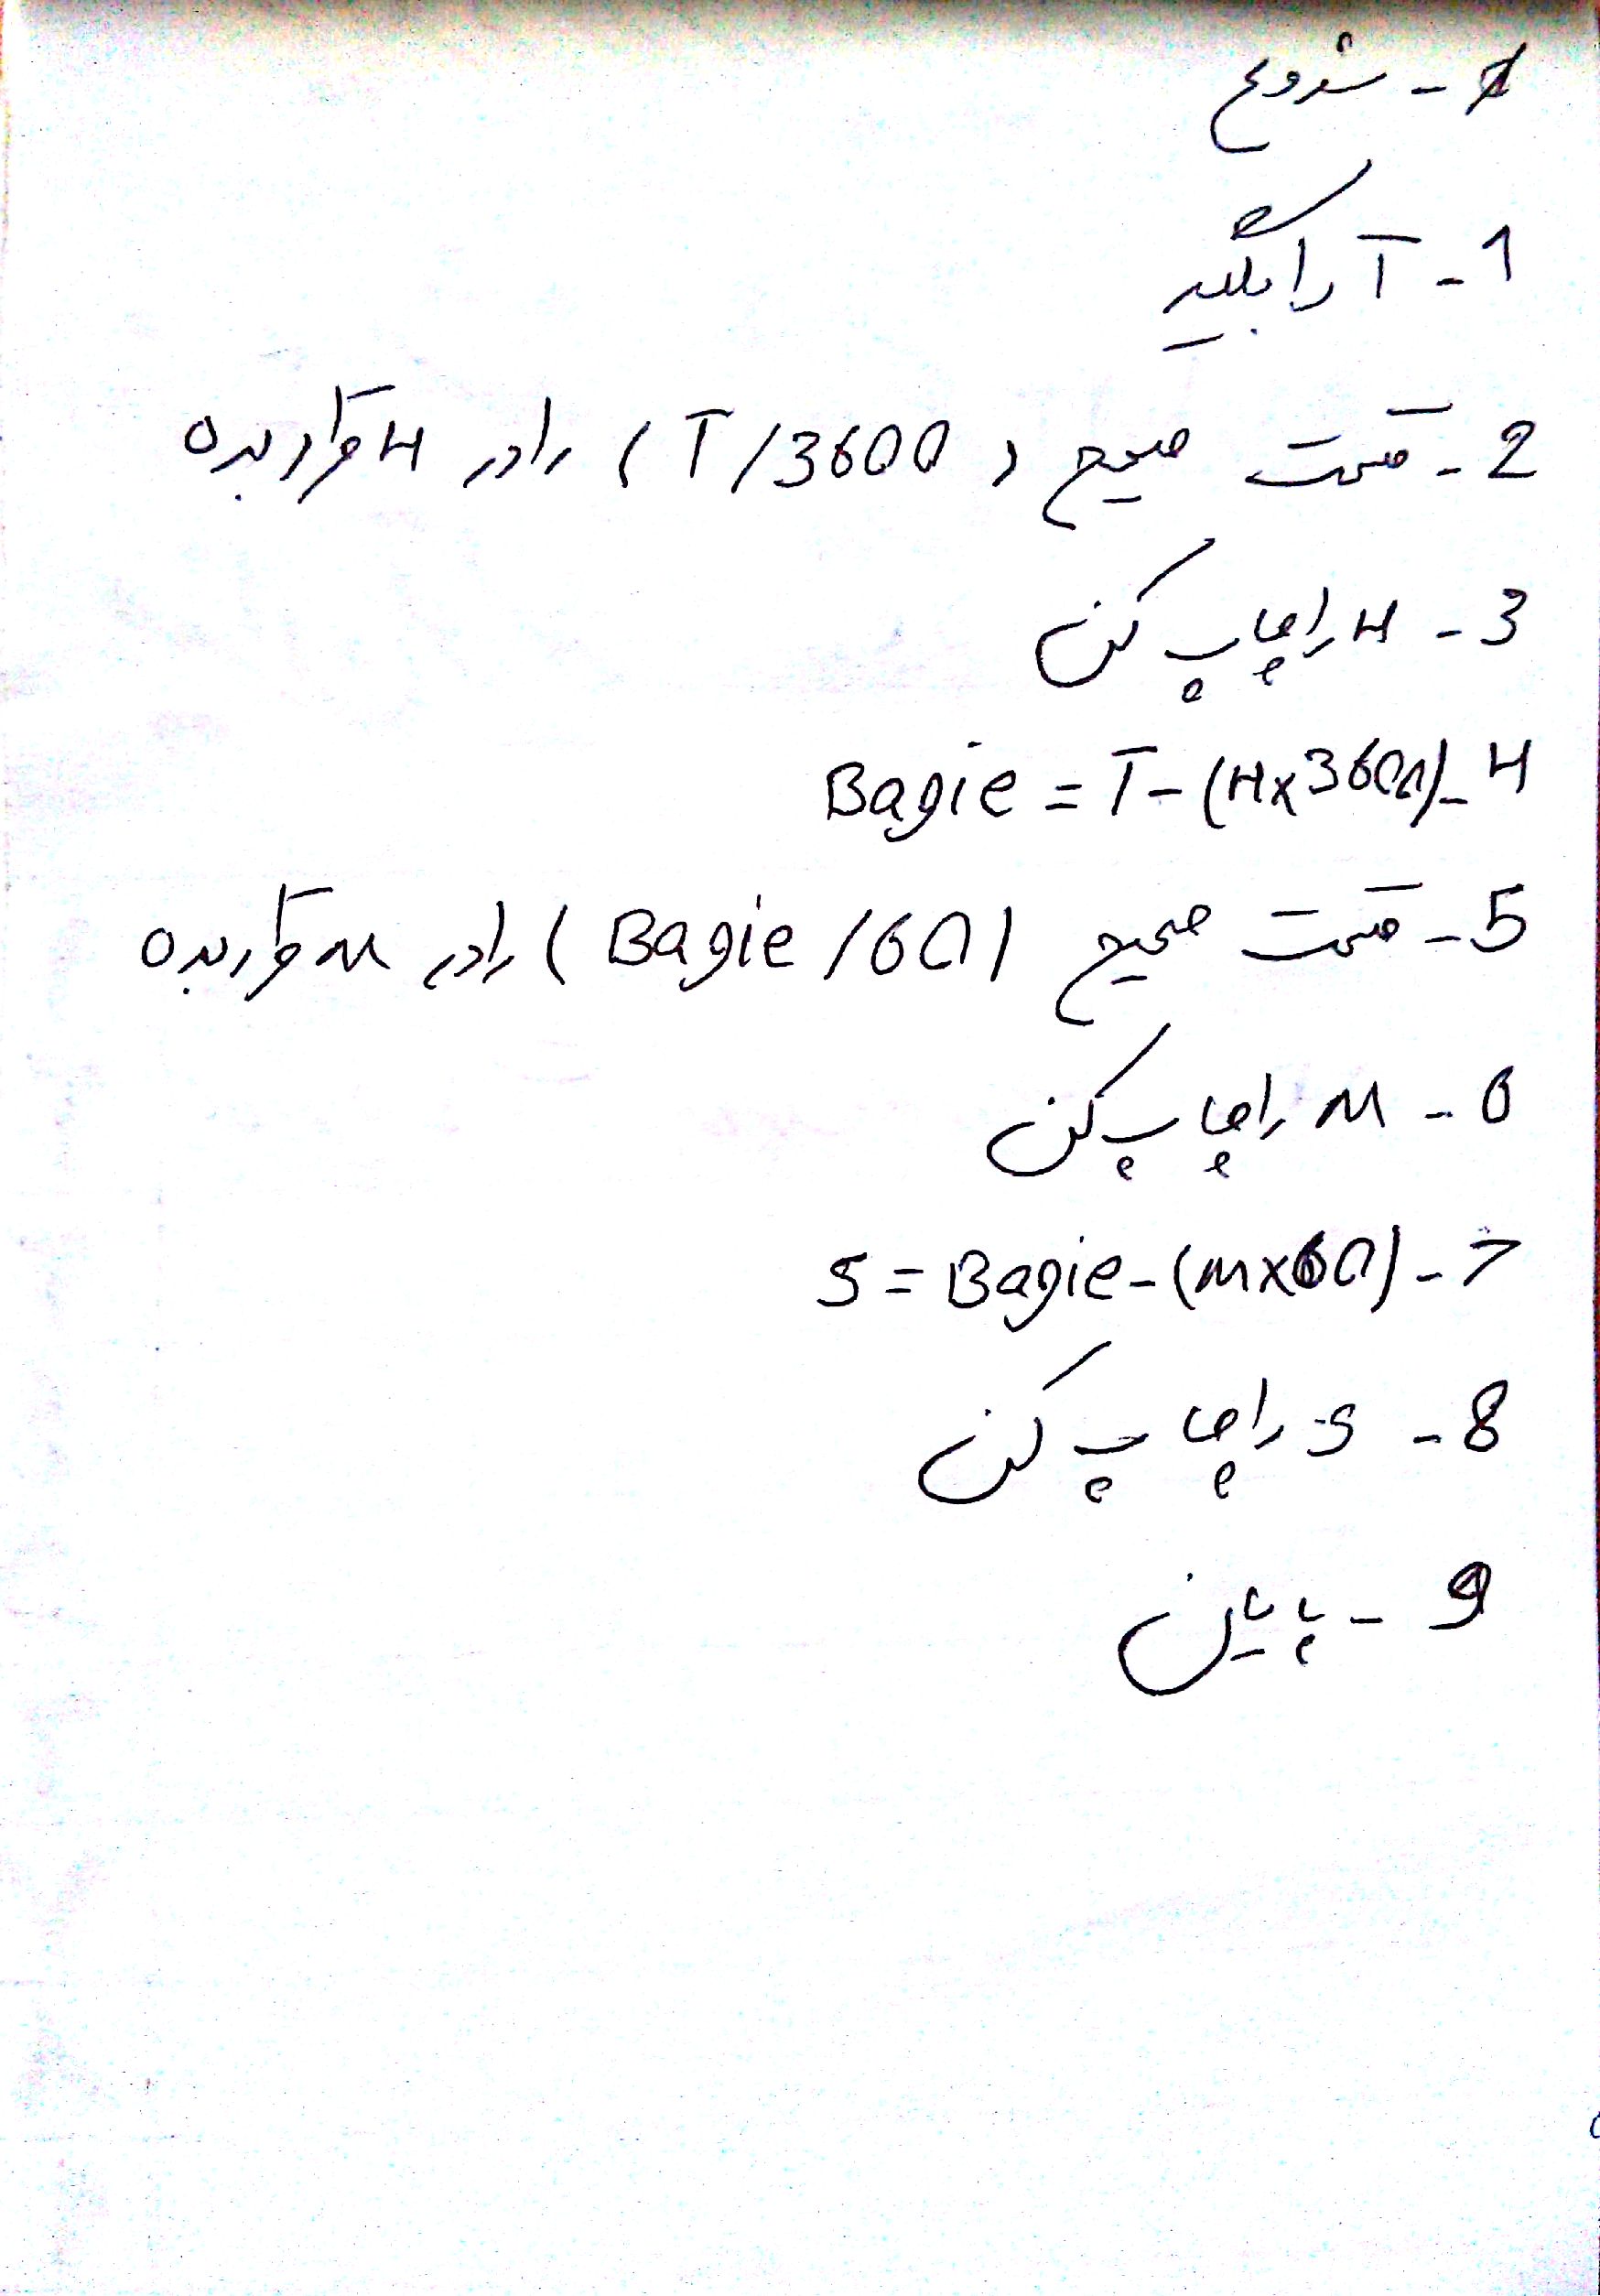 0- شروع
1- T را بگیر
2- قسمت صحیح (T/3600) را در H قرار بده
3- H را چاپ کن
4- Bagie = T-(H×3600)
5- قسمت صحیح (Bagie/60) را در M قرار بده
6- M را چاپ کن
7- S = Bagie-(M×60)
8- S را چاپ کن
9- پایان